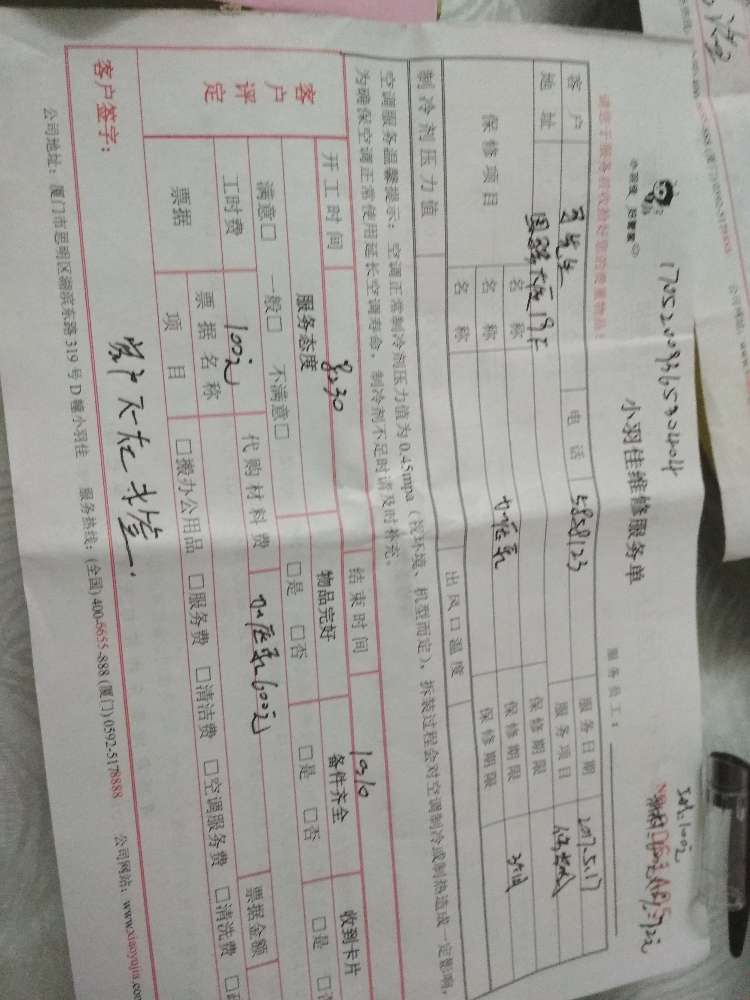 1705200936530404
小羽佳维修服务单
服务员工：
请您于服务前收拾好您的贵重物品！
客户 电话 5858123 服务日期 2017.5.17
地址 19F 服务项目
保修项目 名称 保修期限
名称 加压泵 保修期限
名称 保修期限
制冷剂压力值 出风口温度
空调服务温馨提示：空调正常制冷剂压力值为0.45mpa（视环境、机型而定），拆装过程会对空调制冷或制热造成一定影响，
为确保空调正常使用延长空调寿命，制冷剂不足时请及时补充。
开工时间 8:30 结束时间 10:10
客户评定 服务态度 物品完好 备件齐全 收到卡片
满意□ 一般□ 不满意□ □是 □否 □是 □否 □是
工时费 100元 代购材料费 加压泵600元
票据 票据名称 票据金额
项目 □搬办公用品 □服务费 □清洁费 □空调服务费 □清洗费
客户签字： 客户不在 代签.
公司地址：厦门市思明区湖滨东路319号D幢小羽佳 服务热线：(全国)400-6655-888 (厦门)0592-5178888 公司网站：www.xiaoyujia.com